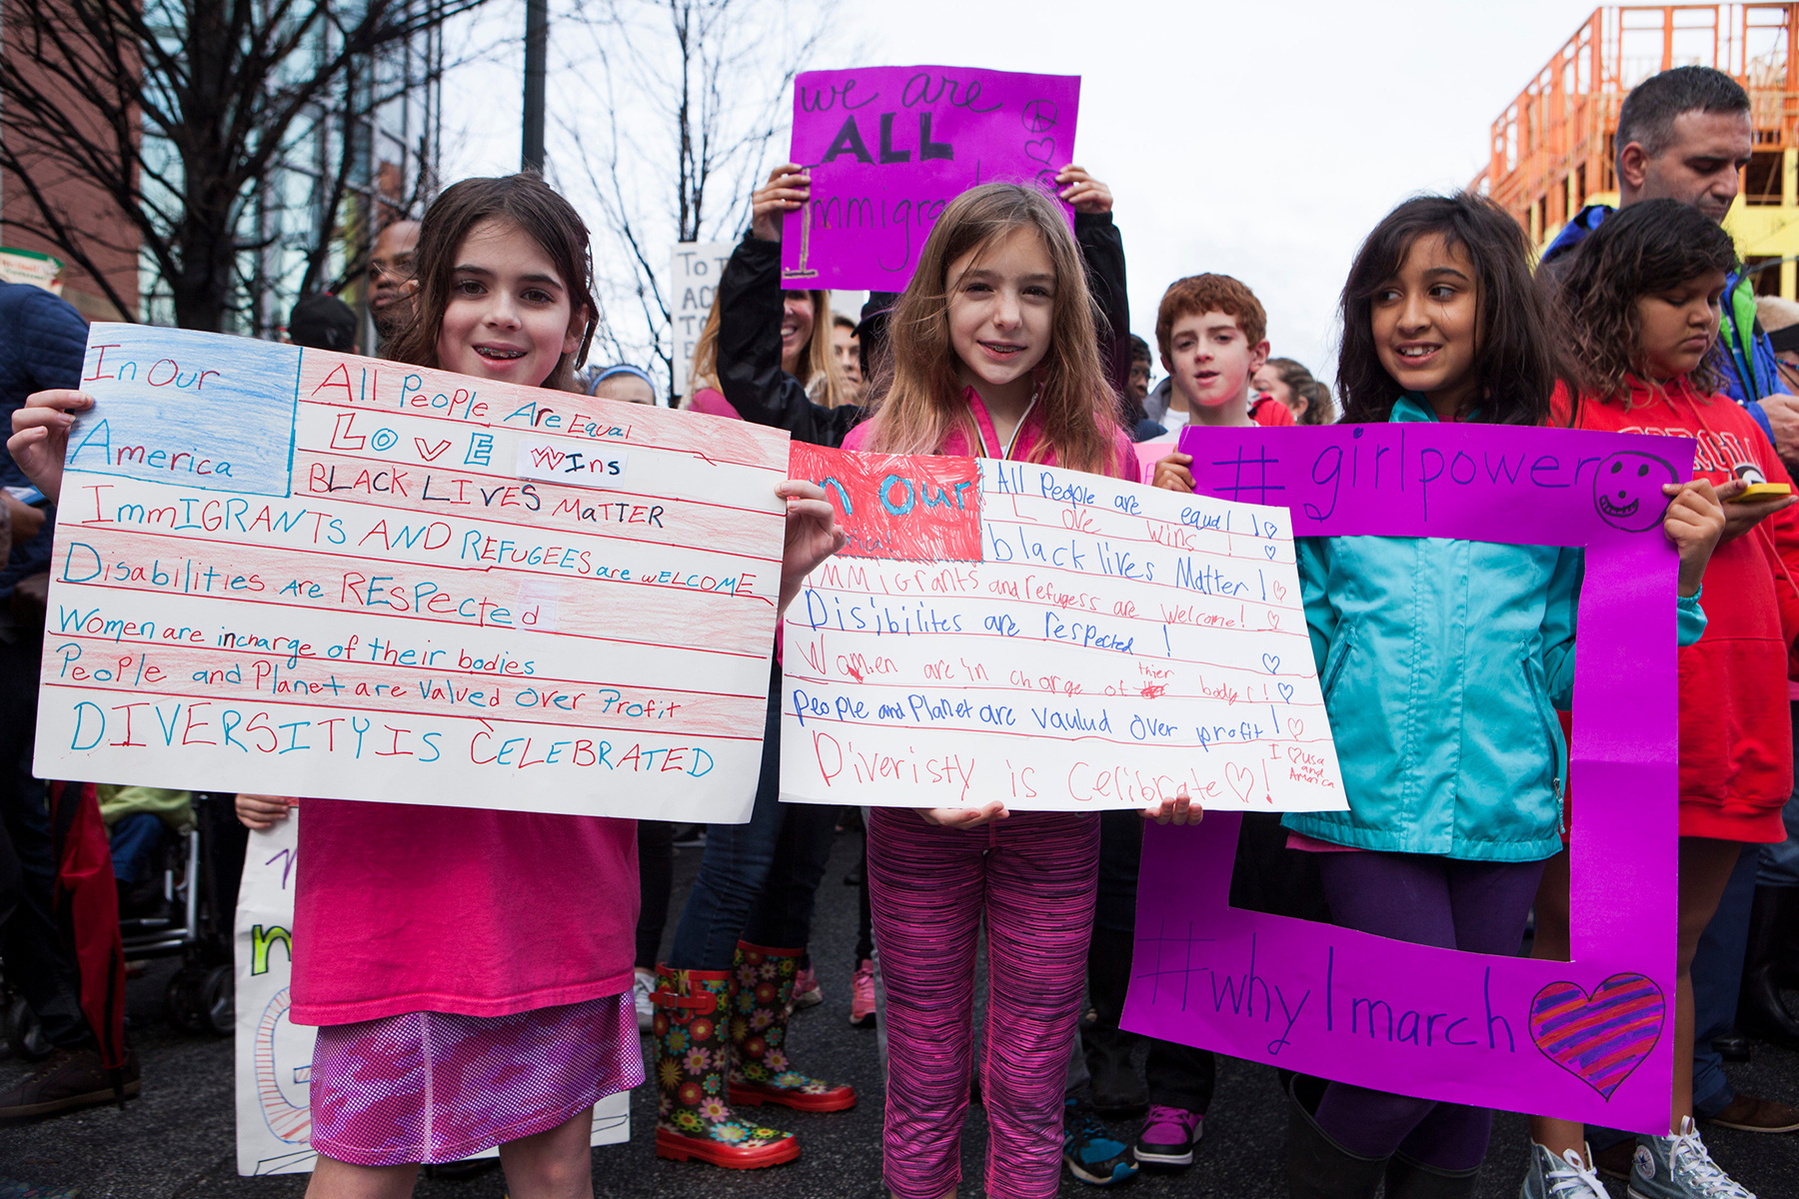 we are
ALL
To
AC
TO
In Our
America
All People Are Equal
LOVE Wins
BLACK LIVES MaTTER
ImmIGRANTs AND REFUGEES are WELCOME
Disabilities are RESPected
Women are incharge of their bodies
People and Planet are Valued Over Profit
DIVERSITY IS CELEBRATED
Our
All People are equal!
Love wins!
black lives Matter!
IMMigrants and refugess are welcome!
Disibilites are respected!
Women are in charge of thier bodys!
people and Planet are vaulud over profit!
Diveristy is Celibrate!
I usa
and
America
#girlpower
#whyImarch